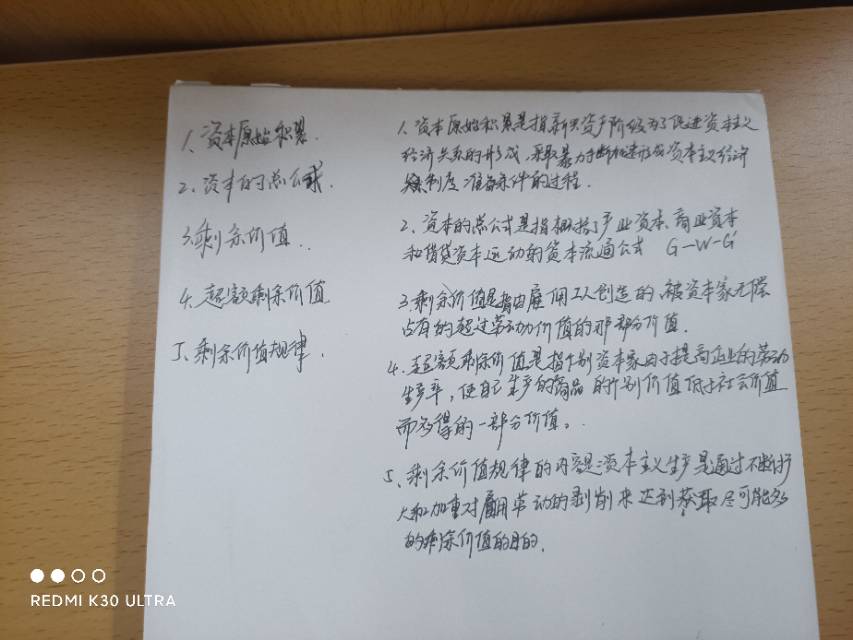 1、资本原始积累.
2、资本的总公式.
3、剩余价值.
4、超额剩余价值
5、剩余价值规律.
1、资本原始积累是指新兴资产阶级为了促进资本主义
经济关系的形成,采取暴力手段 形成资本主义经济
制度准备条件的过程.
2、资本的总公式是指概括了产业资本、商业资本
和借贷资本运动的资本流通公式 G—W—G′
3、剩余价值是指由雇佣工人创造的、被资本家无偿
占有的超过劳动力价值的那部分价值.
4、超额剩余价值是指个别资本家由于提高企业的劳动
生产率,使自己生产的商品的个别价值低于社会价值
而多得的一部分价值。
5、剩余价值规律的内容是:资本主义生产是通过不断扩
大和加重对雇用劳动的剥削来达到获取尽可能多
的剩余价值的目的.
REDMI K30 ULTRA